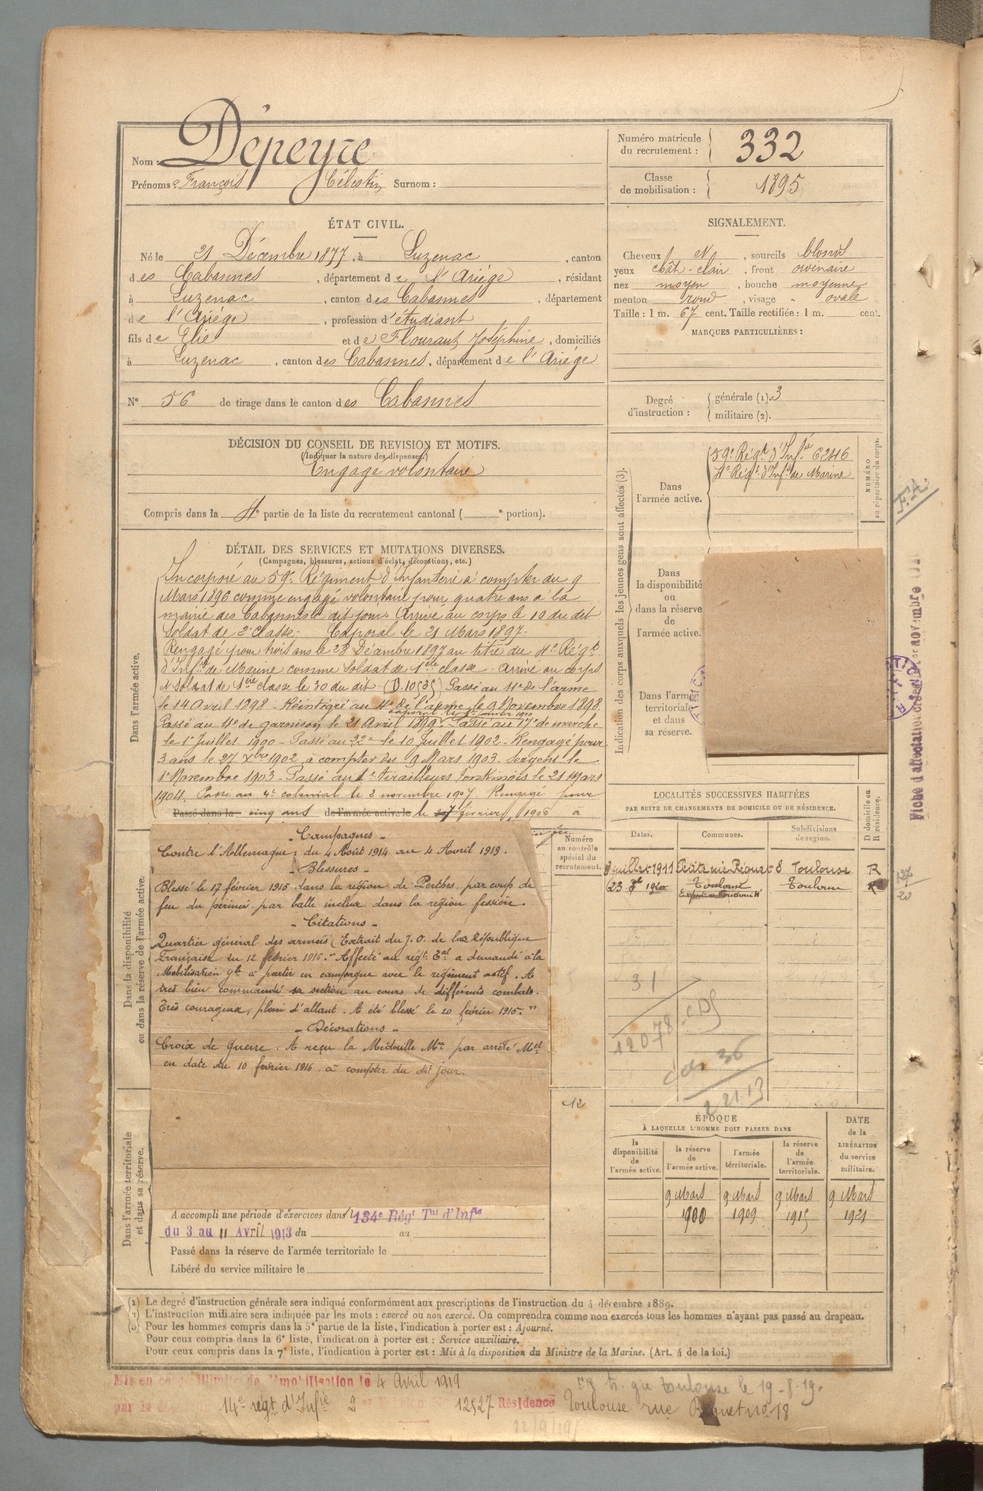 Nom : Dépeyre
Prénoms : François Célestin Surnom :
Numéro matricule du recrutement : 332
Classe de mobilisation : 1895
ÉTAT CIVIL.
Né le 21 Décembre 1877, à Luzenac, canton
des Cabannes, département de l'Ariége, résidant
à Luzenac, canton des Cabannes, département
de l'Ariége, profession d'étudiant
fils de Elie et de Flourant Joséphine, domiciliés
à Luzenac, canton des Cabannes, département de l'Ariége
N° 56 de tirage dans le canton des Cabannes
SIGNALEMENT.
Cheveux et, sourcils blond
yeux chât-clair, front ordinaire
nez moyen, bouche moyenne
menton rond, visage ovale
Taille : 1 m. 67 cent. Taille rectifiée : 1 m. cent.
MARQUES PARTICULIÈRES :
Degré d'instruction : générale (1). 3
militaire (2).
DÉCISION DU CONSEIL DE REVISION ET MOTIFS.
(Indiquer la nature des dispenses)
Engagé volontaire
Compris dans la 4e partie de la liste du recrutement cantonal ( e portion).
Indication des corps auxquels les jeunes gens sont affectés (3).
Dans l'armée active.
59e Régt d'Infie 6246
4e Régt d'Infie de Marine
NUMÉRO au répertoire du corps.
F.A.
Dans la disponibilité ou dans la réserve de l'armée active.
Dans l'armée territoriale et dans sa réserve.
DÉTAIL DES SERVICES ET MUTATIONS DIVERSES.
(Campagnes, blessures, actions d'éclat, décorations, etc.)
Dans l'armée active.
Incorporé au 59e Régiment d'Infanterie à compter du 9
Mars 1896 comme engagé volontaire pour quatre ans à la
mairie des Cabannes dit jour. Arrivé au corps le 10 du dit
Soldat de 2e Classe. Caporal le 21 Mars 1897.
Rengagé pour trois ans le 28 Décembre 1897 au titre du 4e Régt
d'Infie de Marine comme Soldat de 1ère classe. Arrivé au corps
et Soldat de 1ère classe le 30 du dit. Passé au 11e de l'arme
le 14 Avril 1898. Réintégré au 4e de l'arme le 9 Novembre 1898.
Passé au 4e de garnison le 21 Avril Passé au 17e de marche
le 1er Juillet 1900. Passé au 22e le 10 Juillet 1902. Rengagé pour
3 ans le 27 Xbre 1902 à compter du 9 Mars 1903. Sergent le
1er Novembre 1903. Passé au Tirailleurs Tonkinois le 21 Mars
1904. Passé au 4e colonial le 2 novembre 1907 Rengagé pour
Passé dans la cinq ans de l'armée active le février 1906 à
Dans la disponibilité ou dans la réserve de l'armée active.
- Campagnes -
Contre l'Allemagne : du 4 Août 1914 au 4 Avril 1919.
- Blessures -
Blessé le 17 février 1915 dans la région de Perthes, par coup de
feu du périnée, par balle incluse dans la région fessière.
- Citations -
Quartier général des armées (Extrait du J.O. de la République
Française du 12 février 1916. " Affecté au régt Tal a demandé à la
Mobilisation gle à partir en campagne avec le régiment actif. A
très bien commandé sa section au cours de différents combats.
Très courageux, plein d'allant. A été blessé le 20 février 1915. "
- Décorations -
Croix de guerre. A reçu la Médaille Mre par arrêté Mel
en date du 10 février 1916 à compter du dit jour.
Numéro au contrôle spécial du recrutement.
12
Dans l'armée territoriale et dans sa réserve.
A accompli une période d'exercices dans l 134e Régt Tal d'Infie
du 3 au 11 Avril 1913 du au
Passé dans la réserve de l'armée territoriale le
Libéré du service militaire le
LOCALITÉS SUCCESSIVES HABITÉES
PAR SUITE DE CHANGEMENTS DE DOMICILE OU DE RÉSIDENCE.
Dates. Communes. Subdivisions de région. D domicile ou R résidence.
Juillet 1911 Toulouse R
23 1920 Toulouse Toulouse R
31
12078
36
2213
ÉPOQUE
À LAQUELLE L'HOMME DOIT PASSER DANS
la disponibilité de l'armée active. la réserve de l'armée active. l'armée territoriale. la réserve de l'armée territoriale. DATE de la LIBÉRATION du service militaire.
9 Mars 9 Mars 9 Mars 9 Mars
1900 1909 1915 1921
(1) Le degré d'instruction générale sera indiqué conformément aux prescriptions de l'instruction du 4 décembre 1889.
(2) L'instruction militaire sera indiquée par les mots : exercé ou non exercé. On comprendra comme non exercés tous les hommes n'ayant pas passé au drapeau.
(3) Pour les hommes compris dans la 5e partie de la liste, l'indication à porter est : Ajourné.
Pour ceux compris dans la 6e liste, l'indication à porter est : Service auxiliaire.
Pour ceux compris dans la 7e liste, l'indication à porter est : Mis à la disposition du Ministre de la Marine. (Art. 4 de la loi.)
Mis en démobilisation le 4 Avril 1919
par le 14e régt d'Infie 2 12527 Résidence Toulouse rue 18
Toulouse le 19-8-19
22/9/19
Fiche d'affectation